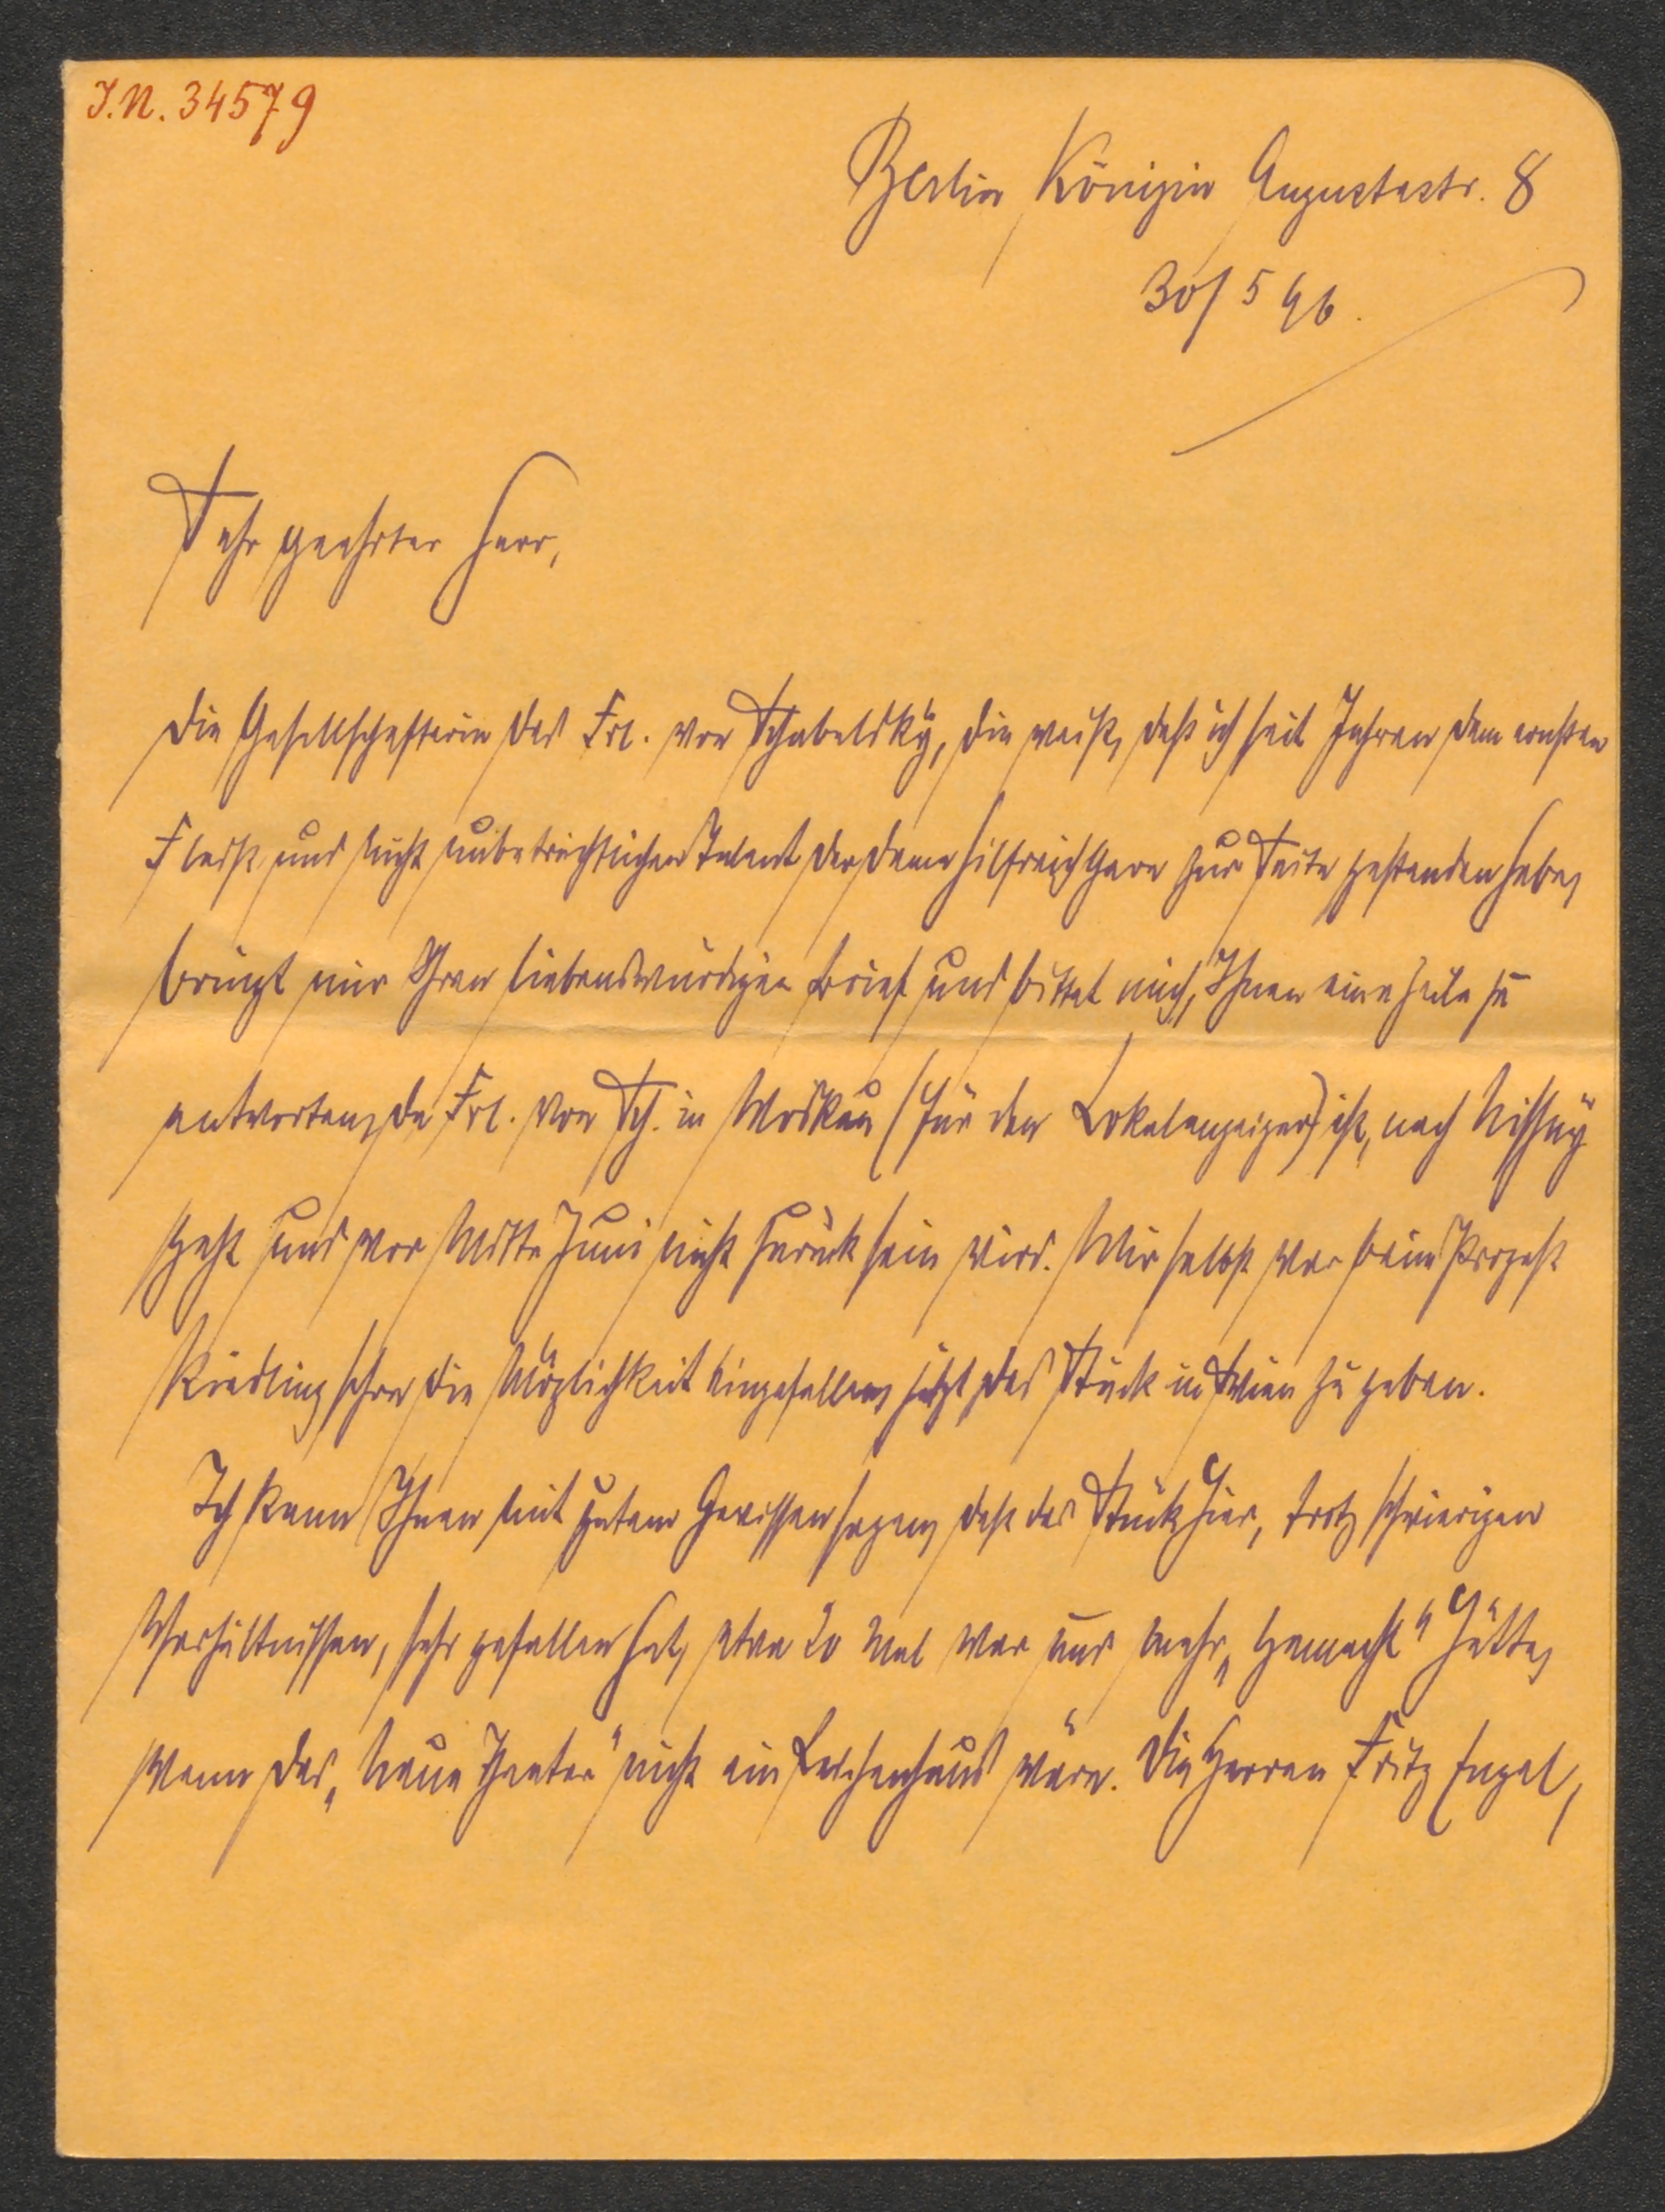 I.N. 34579
Berlin Königin Augustastr. 8
30/5 96.
Sehr geehrter Herr,
die Gesellschafterin des Frl. von Schabelsky, die weiß, daß ich seit Jahren dem ernsten
Fleiß und nicht unbeträchtlichen Talent der Dame hilfreich gern zur Seite gestanden habe,
bringt mir Ihren liebenswürdigen Brief und bittet mich, Ihnen eine Zeile zu
antworten, da Frl. von Sch. in Moskau (für den Lokalanzeiger) ist, nach Nishny
geht und vor Mitte Juni nicht zurück sein wird. Mir selbst war beim Prozeß
schon die Möglichkeit eingefallen, jetzt das Stück in Wien zu geben.
Ich kann Ihnen mit gutem Gewissen sagen, daß das Stück hier, trotz schwierigen
Verhältnissen, sehr gefallen hat, etwa 20 Mal war und mehr „gemacht“ hätte,
wenn das „Neue Theater“ nicht ein Leichenhaus wäre. Die Herren Fritz Engel,